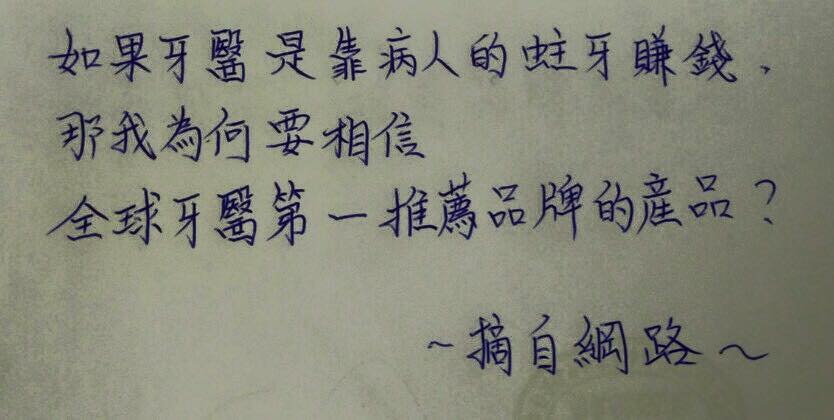 如果牙醫是靠病人的蛀牙賺錢、
那我為何要相信
全球牙醫第一推薦品牌的產品？
~摘自網路~